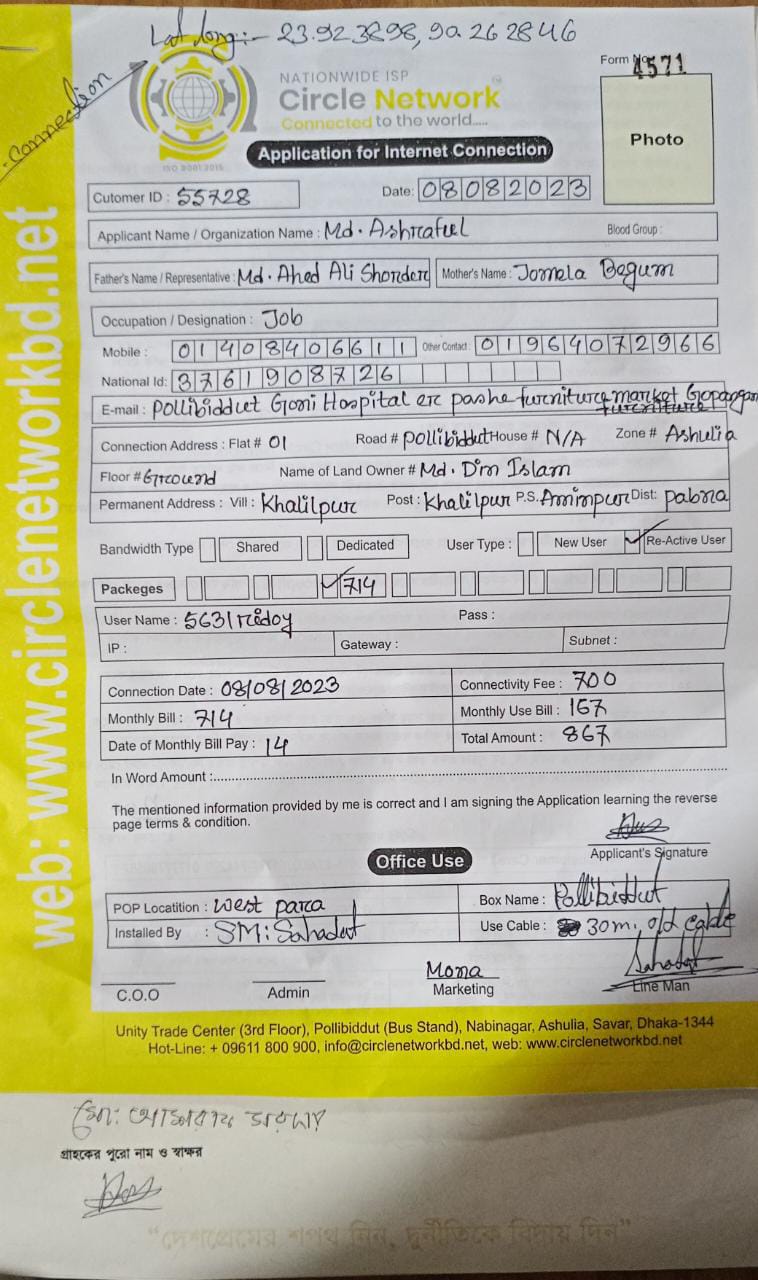 Lat long:- 23.923898, 90.262846
Connection
Form No. 4571
NATIONWIDE ISP
Circle Network
Connected to the world.....
ISO 9001:2015
Photo
Application for Internet Connection
Cutomer ID : 55728 Date: 08082023
Applicant Name / Organization Name : Md. Ashraful Blood Group :
Father's Name / Representative : Md. Ahed Ali Shorder Mother's Name : Jomela Begum
Occupation / Designation : Job
Mobile : 01408406611 Other Contact : 01964072966
National Id: 3761908726
E-mail : Pollibiddut Goni Hospital er pashe furniture market
Connection Address : Flat # 01 Road # pollibiddut House # N/A Zone # Ashulia
Floor # Ground Name of Land Owner # Md. Din Islam
Permanent Address : Vill : Khalilpur Post : Khalilpur P.S. Aminpur Dist: pabna
Bandwidth Type Shared Dedicated User Type : New User ✓ Re-Active User
Packeges ✓ 714
User Name : 5631ridoy Pass :
IP : Gateway : Subnet :
Connection Date : 08/08/2023 Connectivity Fee : 700
Monthly Bill : 714 Monthly Use Bill : 167
Date of Monthly Bill Pay : 14 Total Amount : 867
In Word Amount :
The mentioned information provided by me is correct and I am signing the Application learning the reverse
page terms & condition.
Applicant's Signature
Office Use
POP Locatition : West para Box Name : Pollibiddut
Installed By : SM: Sahadat Use Cable : 30m, old cable
Mona Sahadat
C.O.O Admin Marketing Line Man
Unity Trade Center (3rd Floor), Pollibiddut (Bus Stand), Nabinagar, Ashulia, Savar, Dhaka-1344
Hot-Line: + 09611 800 900, info@circlenetworkbd.net, web: www.circlenetworkbd.net
web: www.circlenetworkbd.net
গ্রাহকের পুরো নাম ও স্বাক্ষর
"দেশপ্রেমের শপথ নিন, দুর্নীতিকে বিদায় দিন"